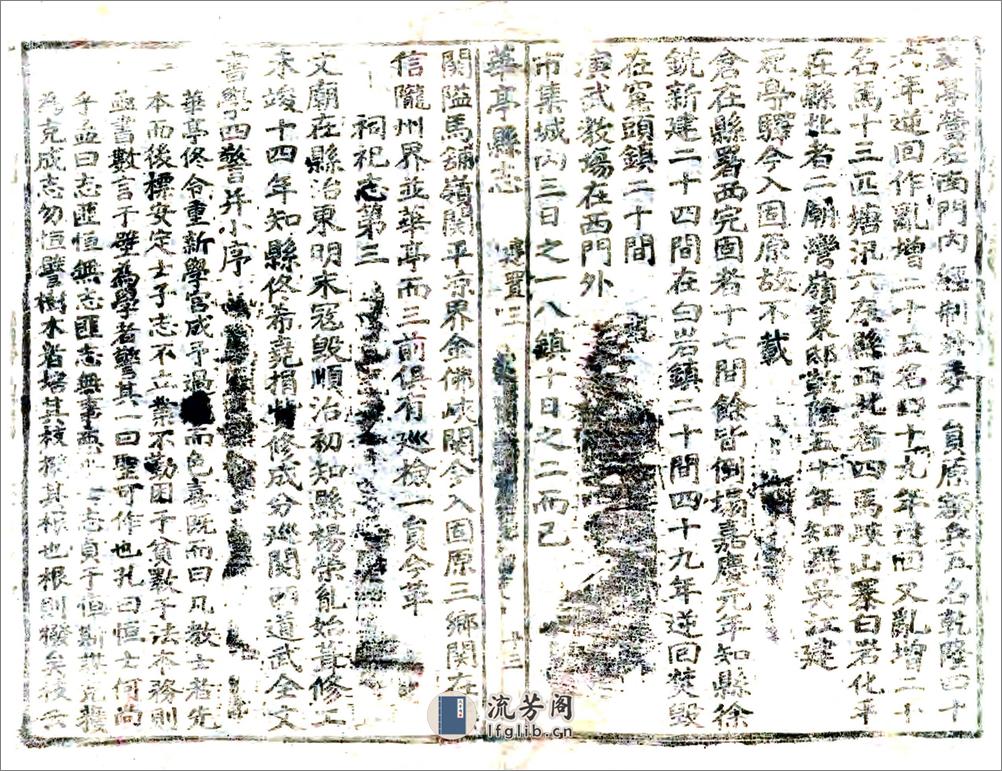 華亭營在西門內經制外委一員原額兵五名乾隆四十
六年逆回作亂增二十五名四十九年逆回又亂增二十
名馬十三匹塘汛六在縣西北者四馬峽山寨白岩化平
在縣北者二廟灣嶺策邸乾隆五十年知縣吳江建
瓦亭驛今入固原故不載
倉在縣署西完固者十七間餘皆倒塌嘉慶元年知縣徐
銑新建二十四間在白岩鎮二十間四十九年逆回焚毀
在窰頭鎮二十間
演武教場在西門外
市集城內三日之一八鎮十日之二而已
華亭縣志 建置三 十三
關隘馬舖嶺關平凉界金佛峽關今入固原三鄉關在
信隴州界並華亭而三前俱有廵檢一員今革
祠祀志第三
文廟在縣治東明末寇毀順治初知縣楊榮亂始葺修工
未竣十四年知縣佟希堯捐修成分廵關西道武全文
書學四警并小序
華亭佟令重新學宮成予過而色喜既而曰凡教士者先
本而後標安定士子志不立業不勤困于貧敷于法本務則
書數言于壁為學者警其一曰聖可作也孔曰恒士何尚
乎孟曰志匪恒無志匪志無事志貞于恒斯
為克成志勿恒譬樹木者培其枝撥其根也根則撥矣枝云
流芳阁
lfglib.cn